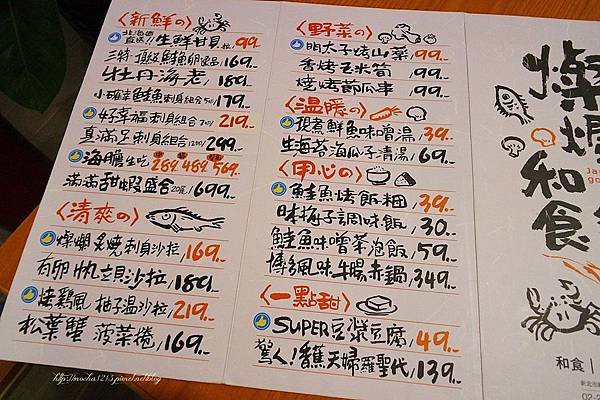 〈新鮮の〉
北海道直送!! 生鮮甘貝 粒 99.-
三特頂級鮭魚卵逸品 169.-
牡丹海老 / 189.-
小確幸鮭魚刺身組合 5切 / 179.-
好幸福刺身組合 7切 / 219.-
真滿足刺身組合 12切 / 299.-
海膽生吃 289. 489. 569.-
滿滿甜蝦盛合 20尾 / 699.-
〈清爽の〉
燦爛炙燒刺身沙拉 / 169.-
有卵帆立貝沙拉 / 189.-
烤鷄風柚子温沙拉 / 219.-
松葉蟹菠菜捲 / 169.-
〈野菜の〉
明太子烤山藥 / 99.-
香烤玉米筍 / 99.-
燒烤節瓜串 / 99.-
〈温暖の〉
現煮鮮魚味噌湯 / 39.-
生海苔海瓜子清湯 / 69.-
〈用心の〉
鮭魚烤飯糰 / 39.-
味梅子調味飯 / 30.-
鮭魚味噌菜泡飯 / 59.-
博多風味牛腸赤鍋 / 349.-
〈一點甜〉
SUPER豆漿豆腐 / 49.-
驚人!香蕉天婦羅聖代 / 139.-
燦爛
和食
Ja
go
和食 |
新北市
02-2
http://mocha1213.pixnet.net/blog